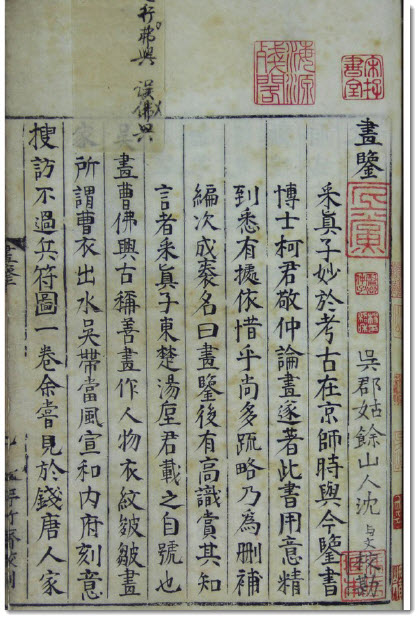 宋存書室
海源殘閣
畫鑒
吳郡姑餘山人沈与文校勘
采真子妙於考古在京師時與今鑒書
博士柯君敬仲論畫遂著此書用意精
到悉有據依惜乎尚多疏略乃為刪補
編次成袠名曰畫鑒後有高識賞其知
言者采真子東楚湯垕君載之自號也
行弗興 誤佛興
畫曹佛興古稱善畫作人物衣紋皺皴畫
所謂曹衣出水吳帶當風宣和内府刻意
搜訪不過兵符圖一卷余嘗見於錢唐人家